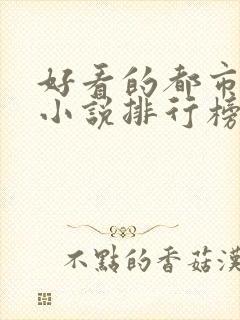 好看的都市
小説排行榜
不點的香菇漢